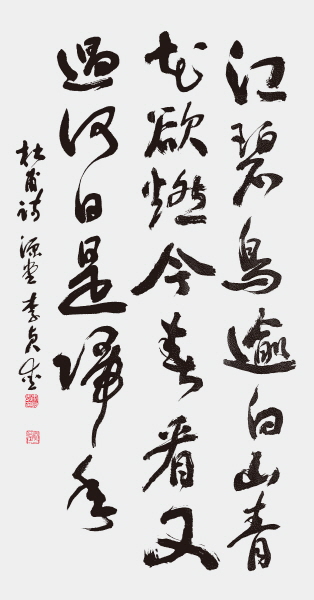 江碧鳥逾白山青
花欲燃今春看又
過何日是歸年
杜甫詩 李貞